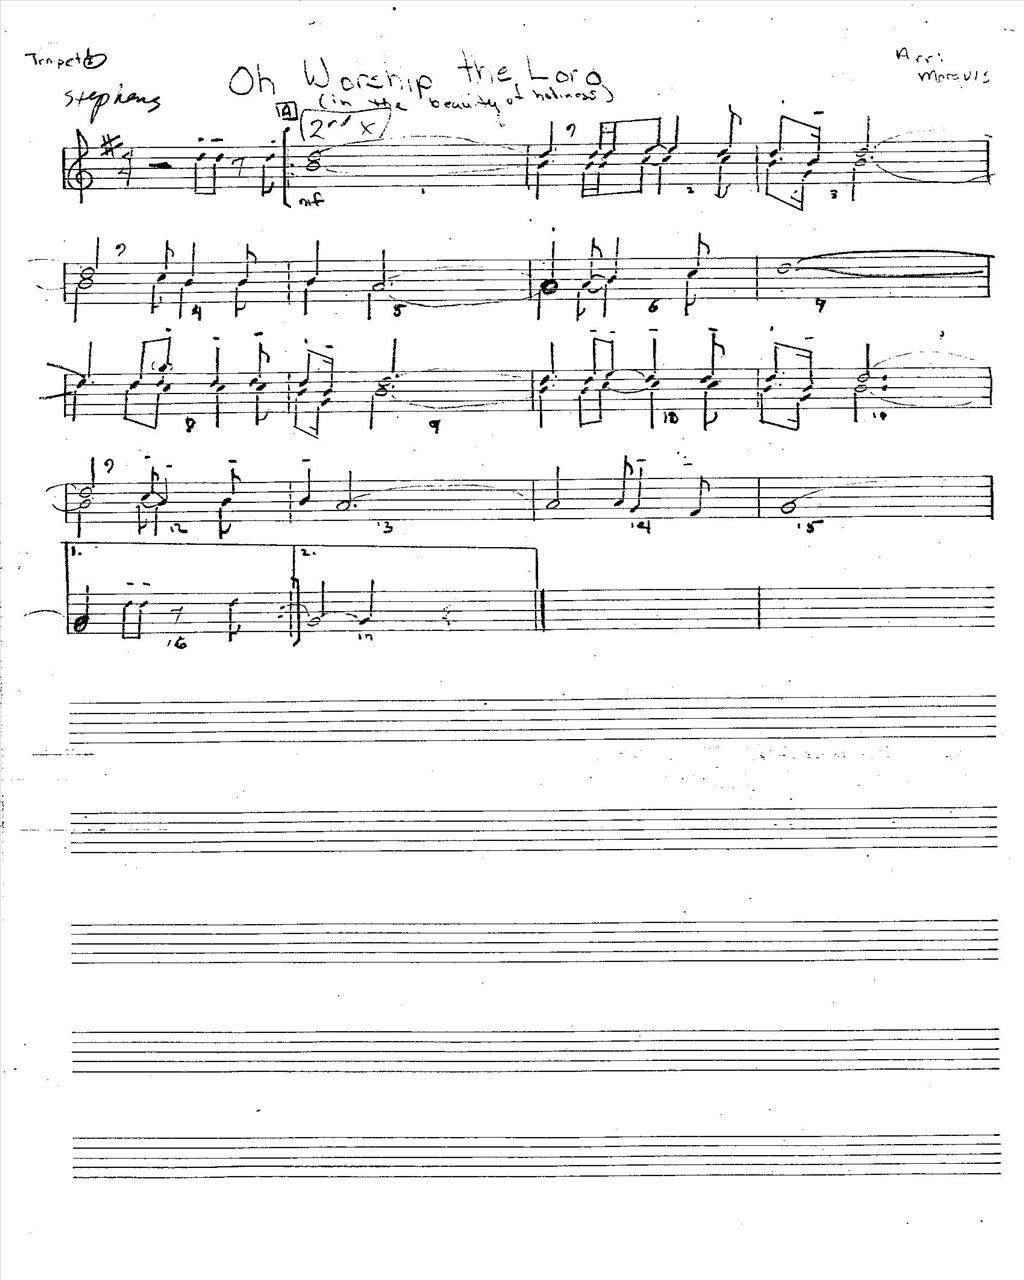 Trnpet
Stephens
Oh Worship the Lord
(in the beauty of holiness)
Arr:
A
2nd x
mf
1 2 3
4 5 6 7
8 9 10 10
12 13 14 15
1. 2.
16 17